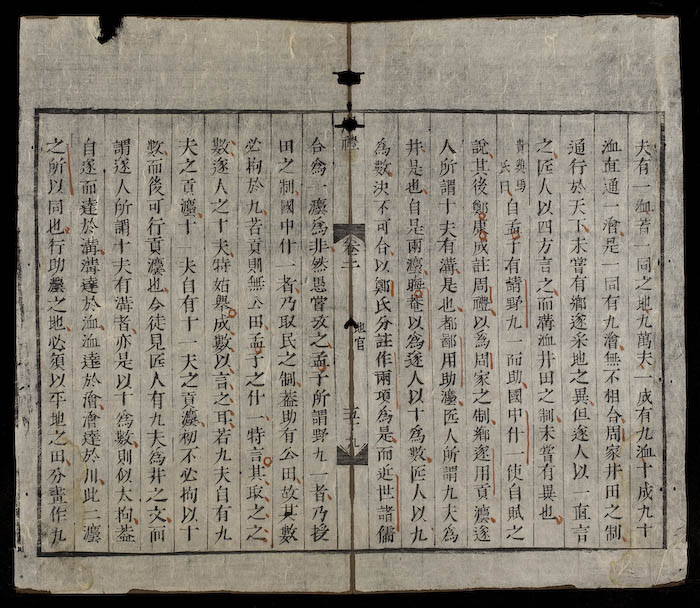 夫有一洫者一同之地九萬夫一成有九洫十成九十
洫直通一澮是一同有九澮無不相合周家井田之制
通行於天下未嘗有鄉遂采地之異但遂人以一直言
之匠人以四方言之而溝洫井田之制未嘗有異也
貴與馬氏曰自孟子有請野九一而助國中什一使自賦之
說其後鄭康成註周禮以爲周家之制鄉遂用貢灋遂
人所謂十夫有溝是也都鄙用助灋匠人所謂九夫爲
井是也自是兩灋晦菴以爲遂人以十爲數匠人以九
爲數決不可合以鄭氏分註作兩項爲是而近世諸儒
禮 卷二 地官 五十九
合爲一灋爲非然愚嘗攷之孟子所謂野九一者乃授
田之制國中什一者乃取民之制葢助有公田故其數
必拘於九若貢則無公田孟子之什一特言其取之之
數遂人之十夫特姑舉成數以言之耳若九夫自有九
夫之貢灋十一夫自有十一夫之貢灋初不必拘以十
數而後可行貢灋也今徒見匠人有九夫爲井之文而
謂遂人所謂十夫有溝者亦是以十爲數則似太拘葢
自遂而達於溝溝達於洫洫達於澮澮達於川此二灋
之所以同也行助灋之地必須以平地之田分畫作九